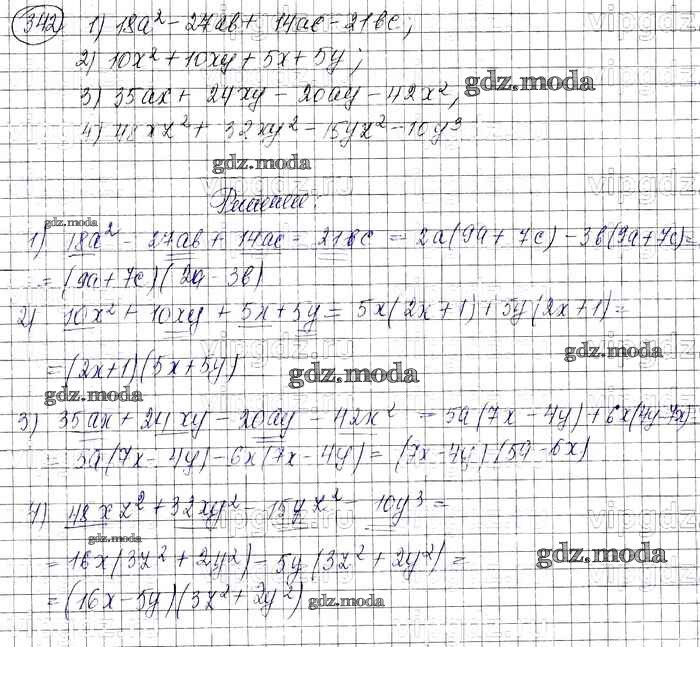 342 1) 18a² - 27ab + 14ac - 21bc;
2) 10x² + 10xy + 5x + 5y;
gdz.moda
3) 35ax + 24xy - 20ay - 42x²,
4) 48xz² + 32xy² - 15yz² - 10y³
gdz.moda
Решение:
gdz.moda
1) 18a² - 27ab + 14ac - 21bc = 2a(9a + 7c) - 3b(9a + 7c) =
= (9a + 7c)(2a - 3b)
2) 10x² + 10xy + 5x + 5y = 5x(2x + 1) + 5y(2x + 1) =
gdz.moda
= (2x+1)(5x + 5y)
gdz.moda
gdz.moda
3) 35ax + 24xy - 20ay - 42x² = 5a(7x - 4y) + 6x(4y - 7x) =
= 5a(7x - 4y) - 6x(7x - 4y) = (7x - 4y)(5a - 6x)
4) 48xz² + 32xy² - 15yz² - 10y³ =
gdz.moda
= 16x(3z² + 2y²) - 5y(3z² + 2y²) =
gdz.moda
= (16x - 5y)(3z² + 2y²)
gdz.moda